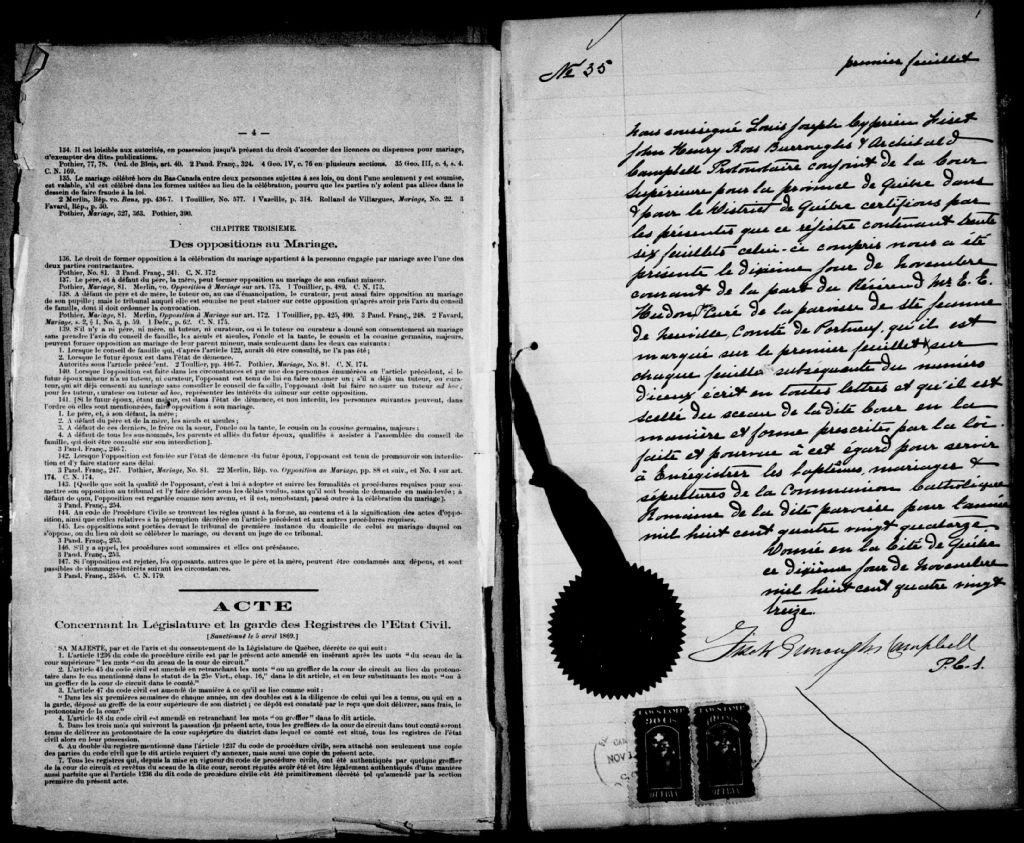 — 4 —
134. Il est loisible aux autorités, en possession jusqu'à présent du droit d'accorder des licences ou dispenses pour mariage,
d'exempter des dites publications.
Pothier, 77, 78. Ord. de Blois, art. 40. 2 Pand. Franç., 324. 4 Geo. IV, c. 76 en plusieurs sections. 35 Geo. III, c. 4, s. 4.
C. N. 169.
135. Le mariage célébré hors du Bas-Canada entre deux personnes sujettes à ses lois, ou dont l'une seulement y est soumise,
est valable, s'il est célébré dans les formes usitées au lieu de la célébration, pourvu que les parties n'y soient pas allées dans le
dessein de faire fraude à la loi.
2 Merlin, Rép. vo. Bans, pp. 436-7. 1 Touillier, No. 577. 1 Vazeille, p. 314. Rolland de Villargues, Mariage, No. 22. 3
Favard, Rép., p. 50.
Pothier, Mariage, 327, 363. Pothier, 390.
CHAPITRE TROISIEME.
Des oppositions au Mariage.
136. Le droit de former opposition à la célébration du mariage appartient à la personne engagée par mariage avec l'une des
deux parties contractantes.
Pothier, No. 81. 3 Pand. Franç., 241. C. N. 172.
137. Le père, et à défaut du père, la mère, peut former opposition au mariage de son enfant mineur.
Pothier, Mariage, 81. Merlin, vo. Opposition à Mariage sur art. 173. 1 Touillier, p. 489. C. N. 173.
138. A défaut de père et de mère, le tuteur ou, au cas d'émancipation, le curateur, peut aussi faire opposition au mariage
de son pupille; mais le tribunal auquel elle est soumise ne peut statuer sur cette opposition qu'après avoir pris l'avis du conseil
de famille, dont il doit ordonner la convocation.
Pothier, Mariage, 81. Merlin, Opposition à Mariage sur art. 172. 1 Touillier, pp. 425, 490. 3 Pand. Franç., 248. 2 Favard,
Mariage, s. 2, § 1, No. 3, p. 59. 1 Delv., p. 62. C. N. 175.
139. S'il n'y a ni père, ni mère, ni tuteur, ni curateur, ou si le tuteur ou curateur a donné son consentement au mariage
sans prendre l'avis du conseil de famille, les aïeuls et aïeules, l'oncle et la tante, le cousin et la cousine germains, majeurs,
peuvent former opposition au mariage de leur parent mineur, mais seulement dans les deux cas suivants :
1. Lorsque le conseil de famille qui, d'après l'article 122, aurait dû être consulté, ne l'a pas été ;
2. Lorsque le futur époux est dans l'état de démence.
Autorités sous l'article précédent. 2 Touillier, pp. 446-7. Pothier, Mariage, No. 81. C. N. 174.
140. Lorsque l'opposition est faite dans les circonstances et par une des personnes énumérées en l'article précédent, si le
futur époux mineur n'a ni tuteur, ni curateur, l'opposant est tenu de lui en faire nommer un ; s'il a déjà un tuteur, ou cura-
teur, qui ait déjà consenti au mariage sans consulter le conseil de famille, l'opposant doit lui faire nommer un tuteur ad hoc,
pour les tuteur, curateur ou tuteur ad hoc, représenter les intérêts du mineur sur cette opposition.
141. [Si le futur époux, étant majeur, est dans l'état de démence, et non interdit, les personnes suivantes peuvent, dans
l'ordre où elles sont mentionnées, faire opposition à son mariage.
1. Le père, et, à son défaut, la mère ;
2. A défaut du père et de la mère, les aïeuls et aïeules ;
3. A défaut de ces derniers, le frère ou la sœur, l'oncle ou la tante, le cousin ou la cousine germains, majeurs ;
4. A défaut de tous les sus-nommés, les parents et alliés du futur époux, qualifiés à assister à l'assemblée du conseil de
famille, qui doit être consulté sur son interdiction].
3 Pand. Franç., 246-7.
142. Lorsque l'opposition est fondée sur l'état de démence du futur époux, l'opposant est tenu de promouvoir son interdic-
tion et d'y faire statuer sans délai.
3 Pand. Franç., 247. Pothier, Mariage, No. 81. 22 Merlin, Rép. vo. Opposition au Mariage, pp. 88 et suiv., et No. 4 sur art.
174. C. N. 174.
143. [Quelle que soit la qualité de l'opposant, c'est à lui à adopter et suivre les formalités et procédures requises pour sou-
mettre son opposition au tribunal et l'y faire décider sous les délais voulus, sans qu'il soit besoin de demande en main-levée ; à
défaut de quoi, l'opposition est regardée comme non avenu, et il est, nonobstant, passé outre à la célébration du mariage].
3 Pand. Franç., 254.
144. Au code de Procédure Civile se trouvent les règles quant à la forme, au contenu et à la signification des actes d'oppo-
sition, ainsi que celles relatives à la péremption décrétée en l'article précédent et aux autres procédures requises.
145. Les oppositions sont portées devant le tribunal de première instance du domicile de celui au mariage duquel on
s'oppose, ou du lieu où doit se célébrer le mariage, ou devant un juge de ce tribunal.
3 Pand. Franç., 253.
146. S'il y a appel, les procédures sont sommaires et elles ont préséance.
3 Pand. Franç., 253.
147. Si l'opposition est rejetée, les opposants, autres que le père et la mère, peuvent être condamnés aux dépens, et sont
passibles de dommages-intérêts suivant les circonstances.
3 Pand. Franç., 255-6. C. N. 179.
ACTE
Concernant la Législature et la garde des Registres de l'Etat Civil.
[Sanctionné le 5 avril 1869.]
SA MAJESTE, par et de l'avis et du consentement de la Législature de Québec, décrète ce qui suit :
1. L'article 1236 du code de procédure civile est par le présent acte amendé en insérant après les mots "du sceau de la
cour supérieure" les mots "ou du sceau de la cour de circuit."
2. L'article 45 du code civil est amendé en retranchant les mots "ou au greffier de la cour de circuit au lieu du protono-
taire dans le cas mentionné dans le statut de la 25e Vict., chap. 16," dans le dit article, et en leur substituants les mots "ou à
un greffier de la cour de circuit dans le comté."
3. L'article 47 du code civil est amendé de manière à ce qu'il se lise comme suit :
"Dans les six premières semaines de chaque année, un des doubles est à la diligence de celui qui les a tenus, ou qui en a
la garde, déposé au greffe de la cour supérieure de son district ; ce dépôt est constaté par le reçu que doit délivrer, sans frais, le
protonotaire de la cour."
4. L'article 48 du code civil est amendé en retranchant les mots "ou greffier" dans le dit article.
5. Dans les trois mois qui suivront la passation du présent acte, tous les greffiers de la cour de circuit dans tout comté seront
tenus de délivrer au protonotaire de la cour supérieure du district dans lequel ce comté est situé, tous les registres de l'état
civil alors en leur possession.
6. Au double du registre mentionné dans l'article 1237 du code de procédure civile, sera attaché non seulement une copie
des parties du code civil que le dit article requiert d'y annexer, mais aussi une copie du présent acte.
7. Tous les registres qui, depuis la mise en vigueur du code de procédure civile, ont été authentiqués par quelque greffier
de la cour de circuit et revêtus du sceau de la dite cour, seront réputés avoir été et être légalement authentiqués d'une manière
aussi parfaite que si l'article 1236 du dit code de procédure civile eût été primitivement décrété tel qu'amendé par la section
première du présent acte.
1
No 35
premier feuillet
Nous soussigné Louis Joseph Cyprien Fiset
John Henry Ross Burroughs & Archibald
Campbell Protonotaire conjoint de la Cour
Supérieure pour la province de Québec dans
& pour le District de Québec certifions par
les présentes que ce régistre contenant trente
six feuillets celui-ci compris nous a été
présenté le dixième jour de Novembre
courant de la part du Révérend Mr E. E.
Hudon Ptre Curé de la paroisse de Ste Jeanne
de Neuville, Comté de Portneuf, qu'il est
marqué sur le premier feuillet & sur
chaque feuille subsequente du numero
d'iceux écrit en toutes lettres et qu'il est
scellé du sceau de la dite Cour en la
manière et forme prescrites par la loi.
faite et pourvue à cet égard pour servir
à Enregistrer les baptêmes, mariages &
sépultures de la Communion Catholique
Romaine de la dite paroisse pour l'année
mil huit cent quatre vingt quatorze
Donné en la Cité de Québec
ce dixième jour de Novembre
mil huit cent quatre vingt
treize.
Fiset Burroughs Campbell
P.C.S.
LAW STAMP
LAW STAMP
QUEBEC
QUEBEC
NOV 1